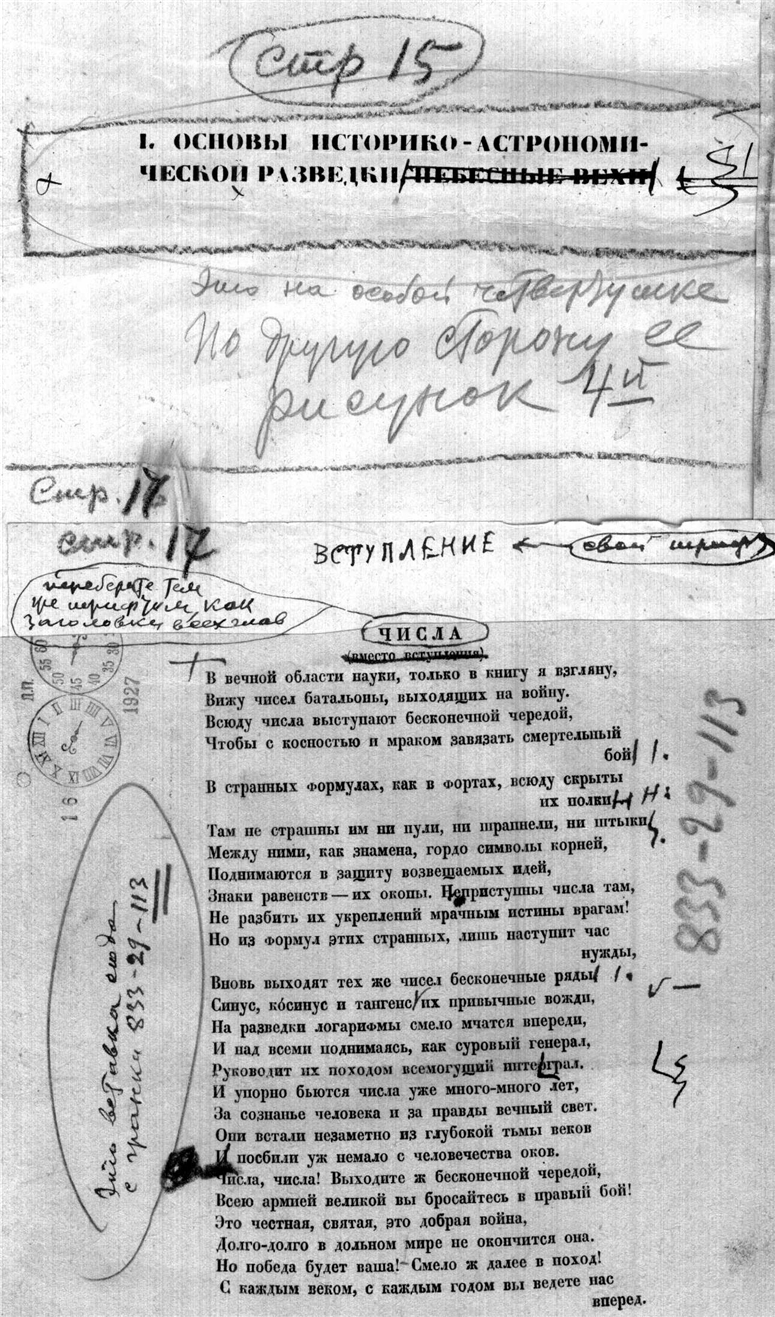 стр 15
I. ОСНОВЫ ИСТОРИКО-АСТРОНОМИ-
ЧЕСКОЙ РАЗВЕДКИ (НЕБЕСНЫЕ ВЕХИ)
Это на особой четвертушке
По другую сторону ее
рисунок 4й
Стр. 16
стр. 17
ВСТУПЛЕНИЕ ← свой шрифт
переберете тем
же шрифтом, как
заголовки всех глав
ЧИСЛА
(вместо вступления).
В вечной области науки, только в книгу я взгляну,
Вижу чисел батальоны, выходящих на войну.
Всюду числа выступают бесконечной чередой,
Чтобы с косностью и мраком завязать смертельный
бой
В странных формулах, как в фортах, всюду скрыты
их полки
Там не страшны им ни пули, ни шрапнели, ни штыки
Между ними, как знамена, гордо символы корней,
Поднимаются в защиту возвещаемых идей,
Знаки равенств — их окопы. Неприступны числа там,
Не разбить их укреплений мрачным истины врагам!
Но из формул этих странных, лишь наступит час
нужды,
Вновь выходят тех же чисел бесконечные ряды
Синус, ко́синус и тангенс их привычные вожди,
На разведки логарифмы смело мчатся впереди,
И над всеми поднимаясь, как суровый генерал,
Руководит их походом всемогущий интеграл.
И упорно бьются числа уже много-много лет,
За сознанье человека и за правды вечный свет.
Они встали незаметно из глубокой тьмы веков
И посбили уж немало с человечества оков.
Числа, числа! Выходите ж бесконечной чередой,
Всею армией великой вы бросайтесь в правый бой!
Это честная, святая, это добрая война,
Долго-долго в дольном мире не окончится она.
Но победа будет ваша! Смело ж далее в поход!
С каждым веком, с каждым годом вы ведете нас
вперед.
Д.П.
1927
16
Эта вставка сюда
с гранки 833-29-113
833-29-113